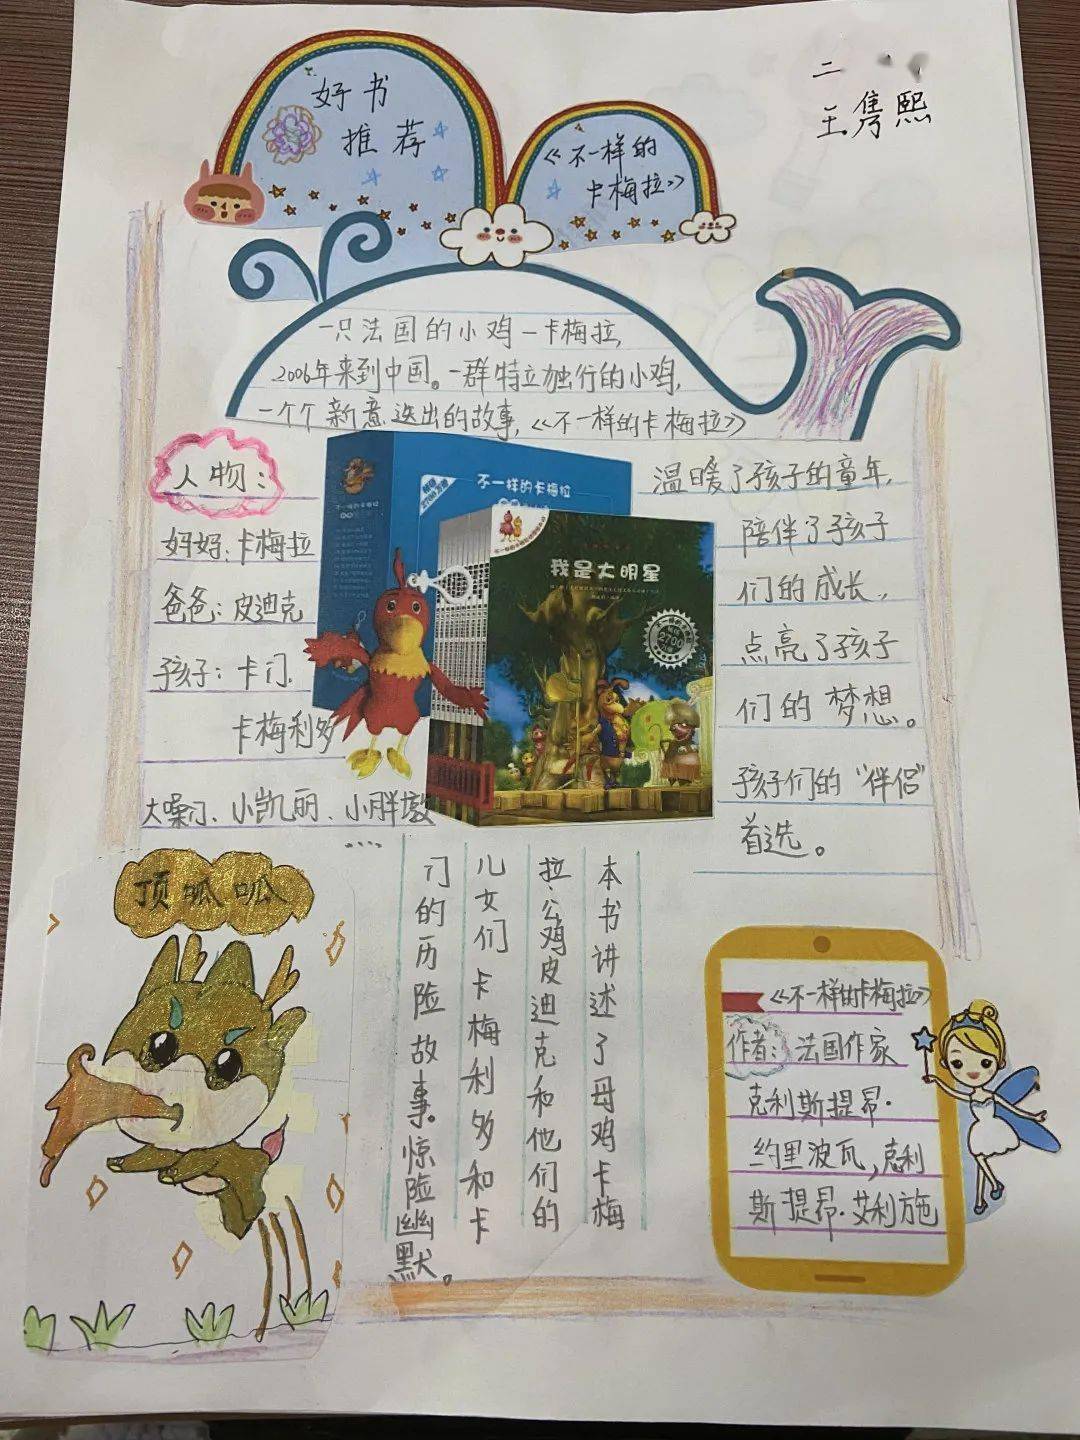 好书
推荐
《不一样的
卡梅拉》
二
王隽熙
一只法国的小鸡—卡梅拉,
2006年来到中国。一群特立独行的小鸡,
一个个新意迭出的故事,《不一样的卡梅拉》
温暖了孩子的童年,
陪伴了孩子
们的成长,
点亮了孩子
们的梦想。
孩子们的“伴侣”
首选。
人物:
妈妈:卡梅拉
爸爸:皮迪克
孩子:卡门、
卡梅利多
大嗓门、小凯丽、小胖墩
....
不一样的卡梅拉
我是大明星
2700
顶呱呱
本书讲述了母鸡卡梅
拉,公鸡皮迪克和他们的
儿女们卡梅利多和卡
门的历险故事。惊险幽默。
《不一样的卡梅拉》
作者:法国作家
克利斯提昂·
约里波瓦,克利
斯提昂·艾利施